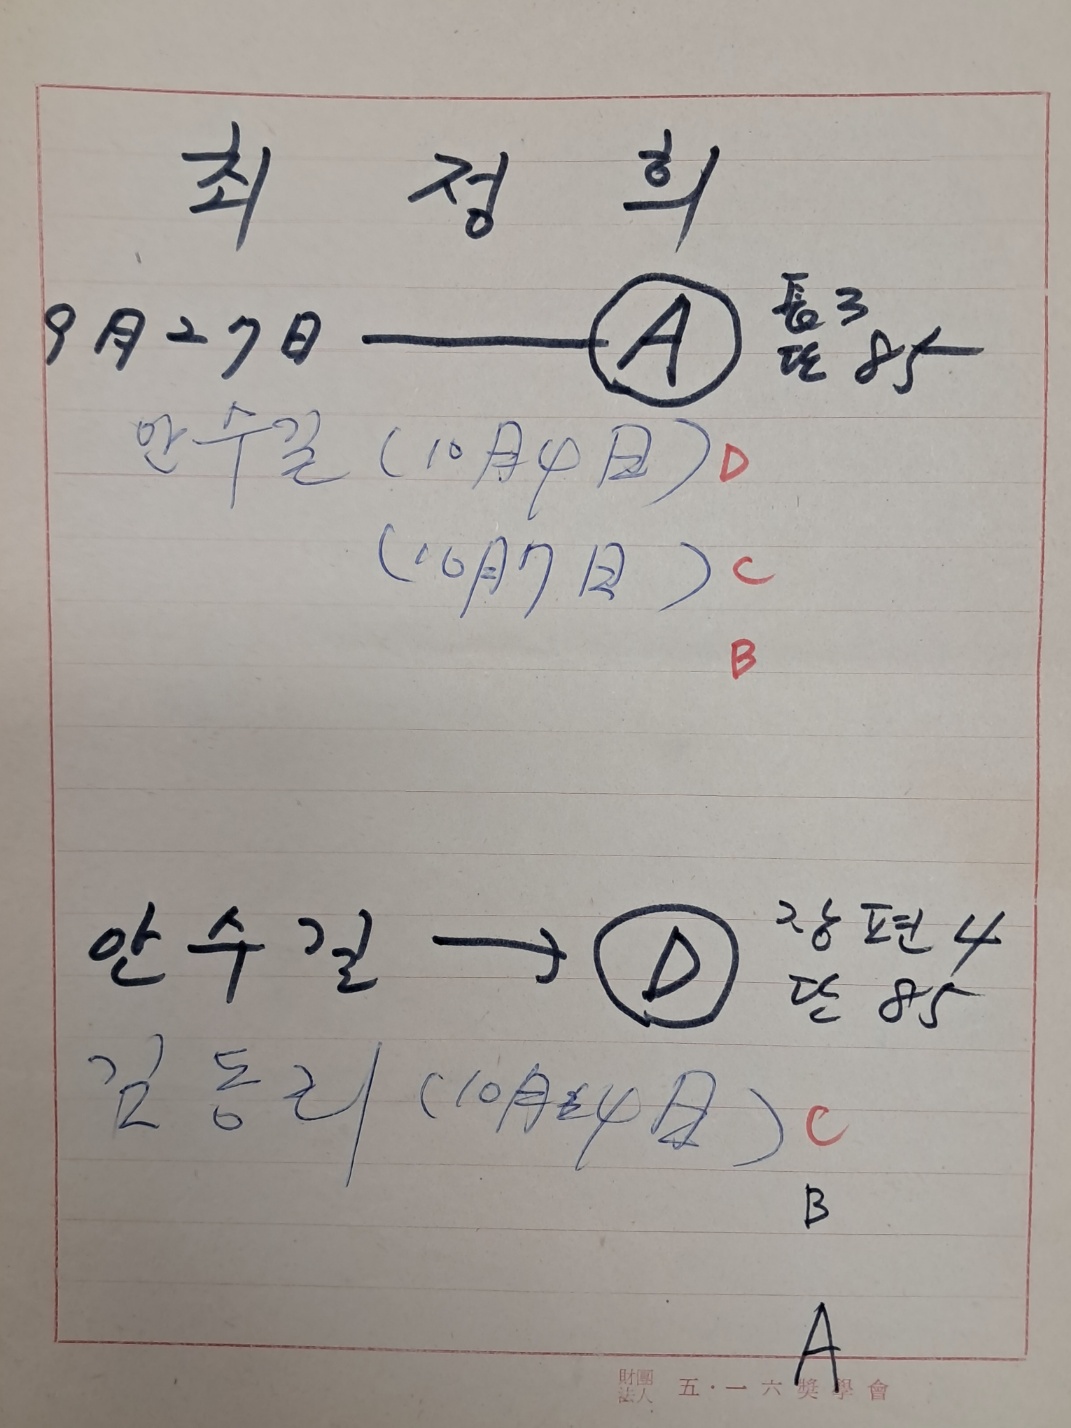 최 정 희
9月27日 Ⓐ 톱3
단 85
안수길 (10月4日) D
(10月7日) C
B
안수길 → Ⓓ 장편4
단 85
김동리 (10月 4日) C
B
A
財團法人 五·一六奬學會